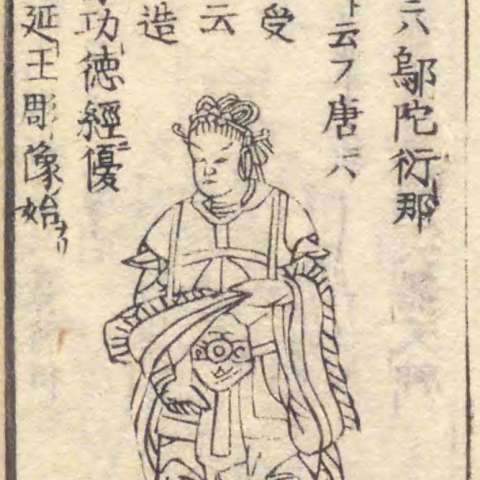 ハ鄔陀衍那
云フ唐ハ
受
云
造
功徳經ニ優
延王彫像ノ始ナリ